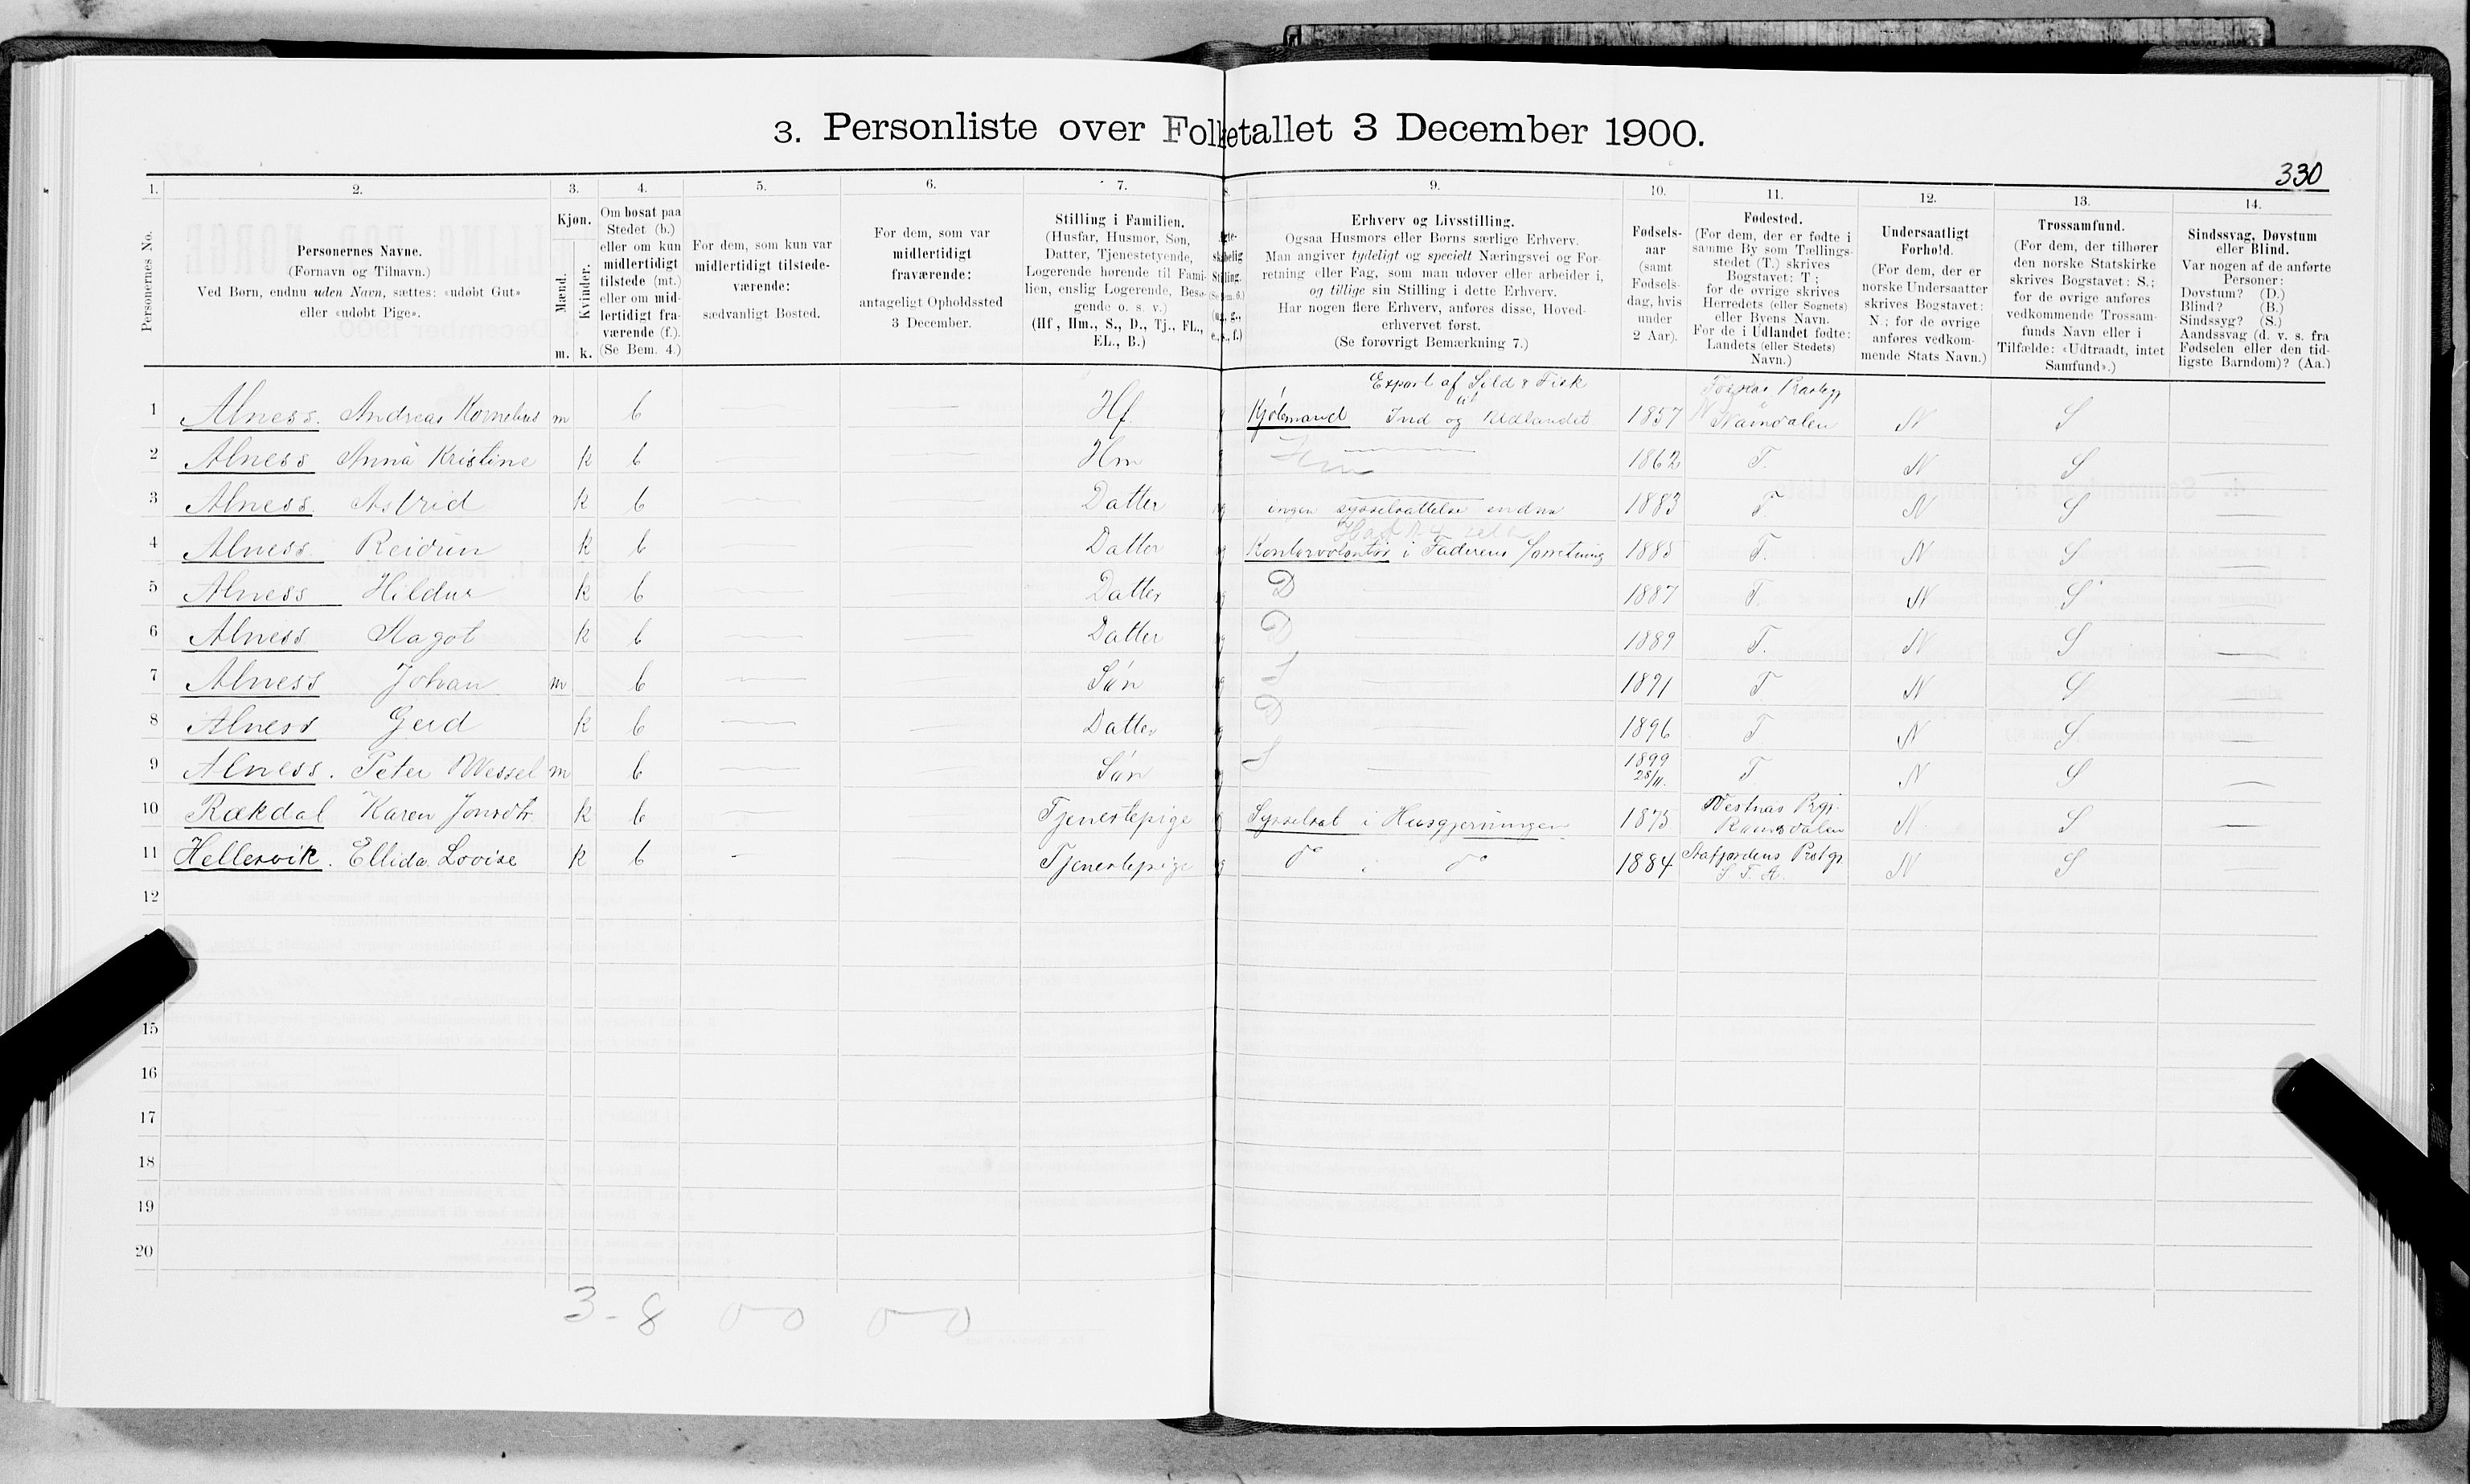 3. Personliste over Folketallet 3 December 1900.
330
1. 2. 3. 4. 5. 6. 7. 8. 9. 10. 11. 12. 13. 14.
Personernes No.
Personernes Navne.
(Fornavn og Tilnavn.)
Ved Børn, endnu uden Navn, sættes: «udøbt Gut»
eller «udøbt Pige».
Kjøn.
Mænd.
Kvinder.
m. k.
Om bosat paa
Stedet (b.)
eller om kun
midlertidigt
tilstede (mt.)
eller om mid-
lertidigt fra-
værende (f.).
(Se Bem. 4.)
For dem, som kun var
midlertidigt tilstede-
værende:
sædvanligt Bosted.
For dem, som var
midlertidigt
fraværende:
antageligt Opholdssted
3 December.
Stilling i Familien.
(Husfar, Husmor, Søn,
Datter, Tjenestetyende,
Logerende hørende til Fami-
lien, enslig Logerende, Besø-
gende o. s. v.)
(Hf, Hm., S., D., Tj., FL.,
EL., B.)
Erhverv og Livsstilling.
Ogsaa Husmors eller Børns særlige Erhverv.
Man angiver tydeligt og specielt Næringsvei og For-
retning eller Fag, som man udøver eller arbeider i,
og tillige sin Stilling i dette Erhverv.
Har nogen flere Erhverv, anføres disse, Hoved-
erhvervet først.
(Se forøvrigt Bemærkning 7.)
Fødsels-
aar
(samt
Fødsels-
dag, hvis
under
2 Aar).
Fødested.
(For dem, der er fødte i
samme By som Tællings-
stedet (T.) skrives
Bogstavet: T;
for de øvrige skrives
Herredets (eller Sognets)
eller Byens Navn.
For de i Udlandet fødte:
Landets (eller Stedets)
Navn.)
Undersaatligt
Forhold.
(For dem, der er
norske Undersaatter
skrives Bogstavet:
N.; for de øvrige
anføres vedkom-
mende Stats Navn.)
Trossamfund.
(For dem, der tilhører
den norske Statskirke
skrives Bogstavet: S.;
for de øvrige anføres
vedkommende Trossam-
funds Navn eller i
Tilfælde: «Udtraadt, intet
Samfund».)
Sindssvag, Døvstum
eller Blind.
Var nogen af de anførte
Personer:
Døvstum? (D.)
Blind? (B.)
Sindssyg? (S.)
Aandssvag (d. v. s. fra
Fødselen eller den tid-
ligste Barndom)? (Aa.)
Export af Sild & Fisk
1 Alness. Andreas Kornelius m b Hf Kjøbmand Ind og Udlandet 1857 Namdalen N S
2 Alness Anna Kristine k b Hm Hm 1862 T. N S
3 Alness. Astrid k b Datter ingen sysselsættelse endnu 1883 T N S
4 Alness. Reidun k b Datter Kontorvolontør i Faderens forretning 1885 T. N S
5 Alness Hildur k b Datter D 1887 T. N S
6 Alness Magot k b Datter D 1889 T. N S
7 Alness Johan m b Søn S 1891 T N S
8 Alness Gerd k b Datter D 1896 T N S
9 Alness. Peter Wessel m b Søn S 1899 28/11. T N S
10 Rækdal Karen Jonsdtr k b Tjenestepige Sysselsat i Husgjerningen 1875 Vestnæs Prgj. Romsdalen N S
11 Hellesvik. Ellida Lovise k b Tjenestepige do i do 1884 Prstgj S. T. A. N S
12
15
16
17
18
19
20
3 - 8 0 - 0 0 - 0